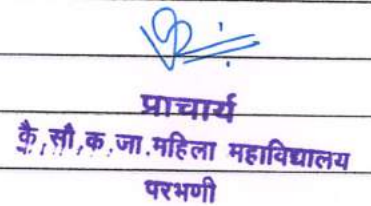 प्राचार्य
कै.सौ.क.जा.महिला महाविद्यालय
परभणी